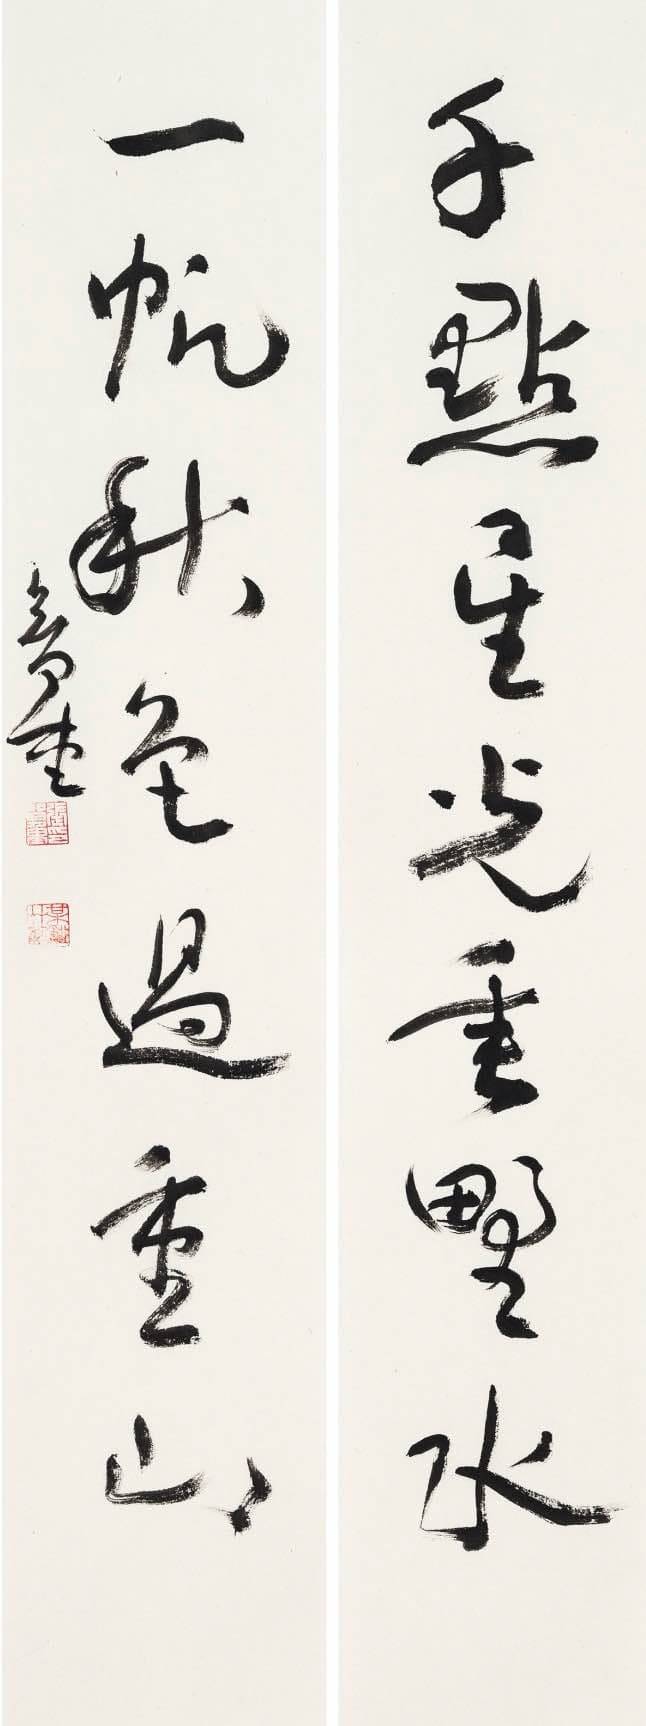 千點星光垂野水
一帆秋色過重山